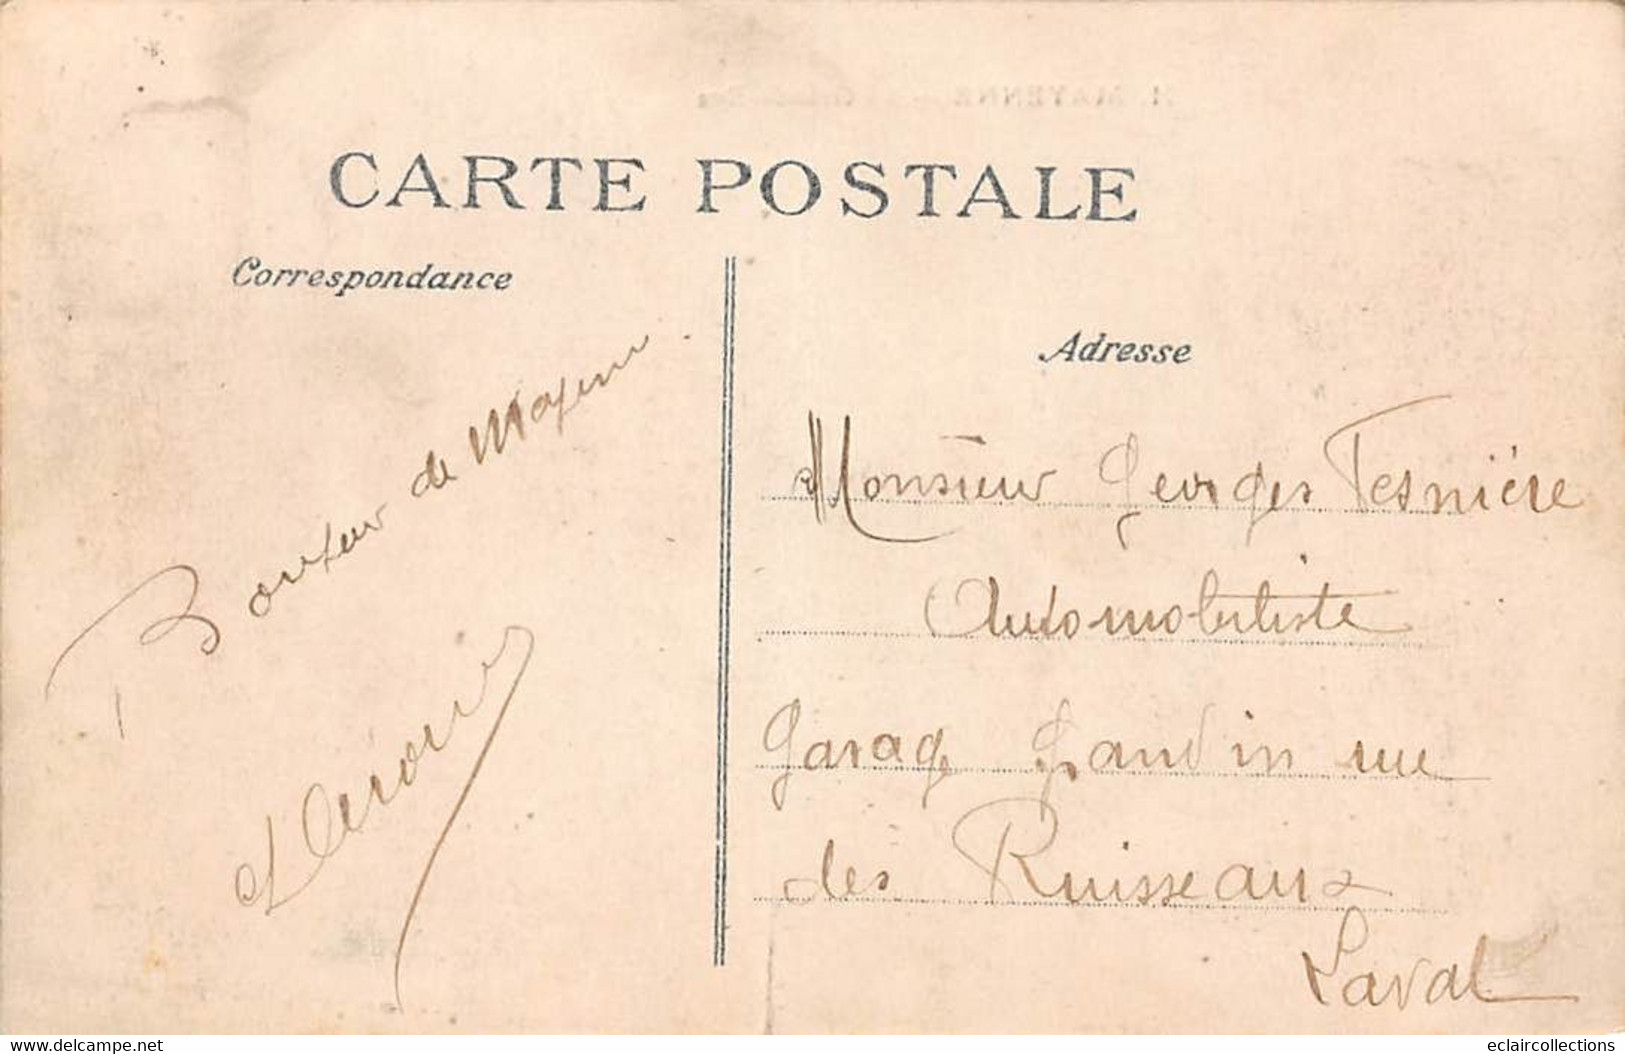 CARTE POSTALE
Correspondance
Adresse
de Mayenne
Monsieur Georges Tesnière
Automobiliste
Garage Gandin rue
des Ruisseaux
Laval
Delcampe.net
eclaircollections